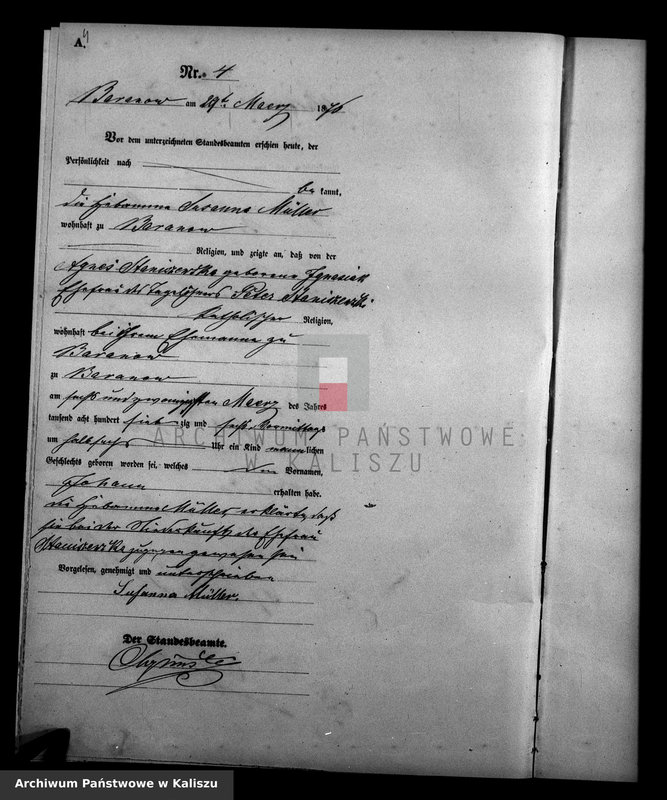 A.
4
Nr. 4
Baranow am 29t. Maerz 1876
Vor dem unterzeichneten Standesbeamten erschien heute, der
Persönlichkeit nach
be kannt,
die Hebamme Susanna Müller
wohnhaft zu Baranow
Religion, und zeigte an, daß von der
Agnes Staniszewska geborene Ignasiak
Ehefrau des Tagelöhners Peter Staniszewski
katholischer Religion,
wohnhaft bei ihrem Ehemanne zu
Baranow
zu Baranow
am sechs und zwanzigsten Maerz des Jahres
tausend acht hundert sieb zig und sechs Vormittags
um halb sechs Uhr ein Kind maennlichen
Geschlechts geboren worden sei, welches den Vornamen,
Johann
erhalten habe.
die Hebamme Müller erklärte, daß
sie bei der Niederkunft der Ehefrau
Staniszewska zugegen gewesen sei
Vorgelesen, genehmigt und unterschrieben
Susanna Müller.
Der Standesbeamte.
ARCHIWUM PAŃSTWOWE
W KALISZU
Archiwum Państwowe w Kaliszu